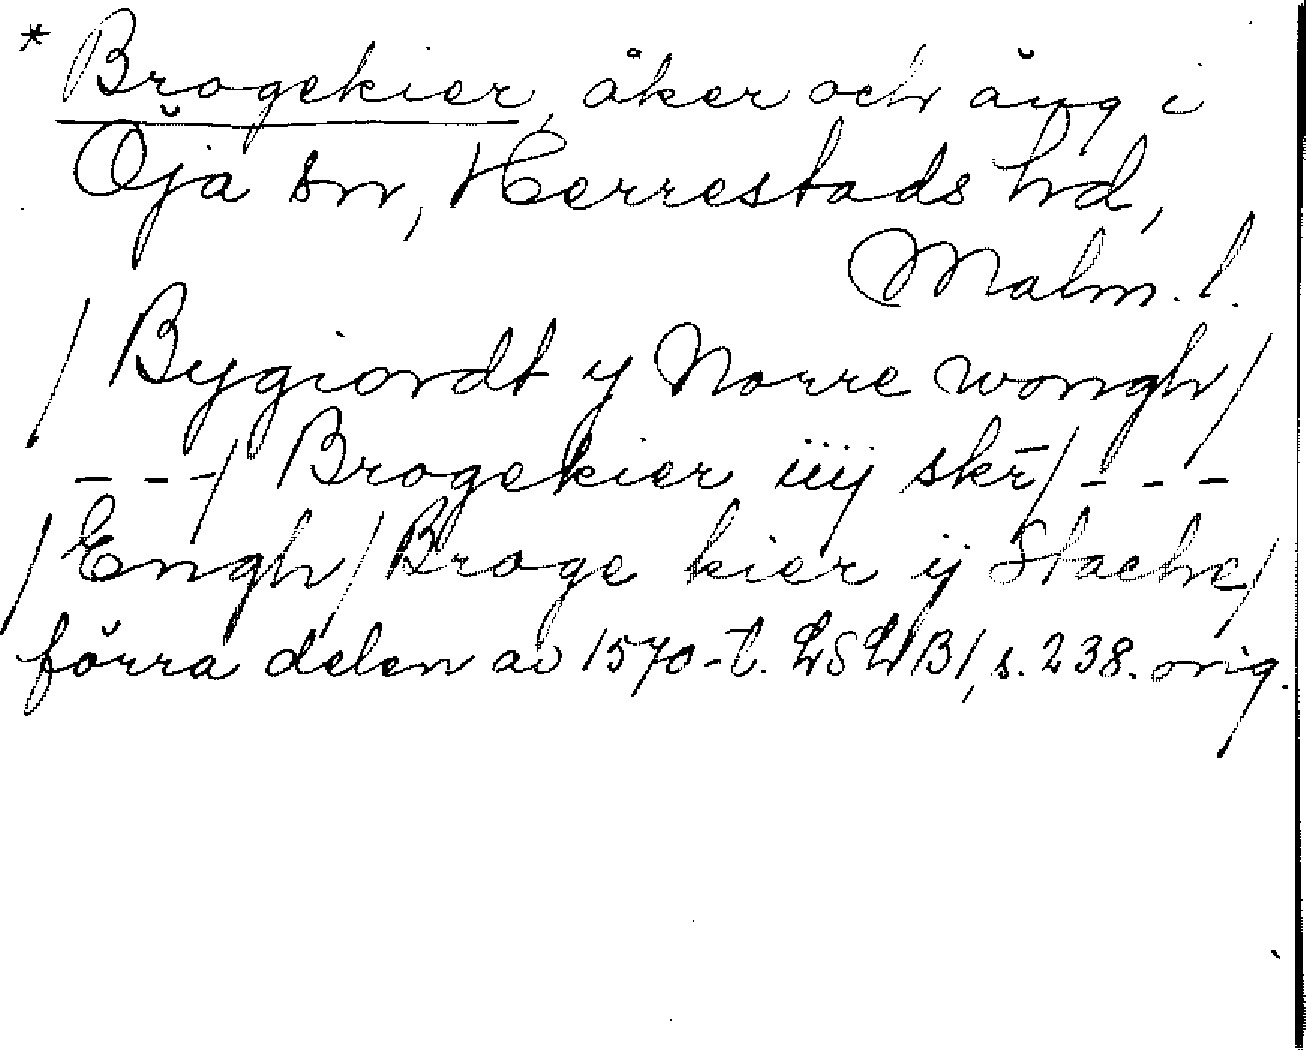 * Brogekier, åker och äng i
Öja sn, Herrestads hd,
Malm. l.
/ Bygiordt y Norre wongh /
- - - / Brogekier iiij skr̄ / - - -
/ Engh / Broge kier ij Stache /
förra delen av 1570-t. LSLB 1, s. 238. orig.